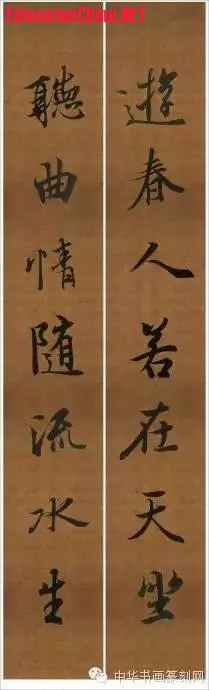 EdmontonChina.NET
遊春人若在天坐
聽曲情随流水生
中华书画篆刻网